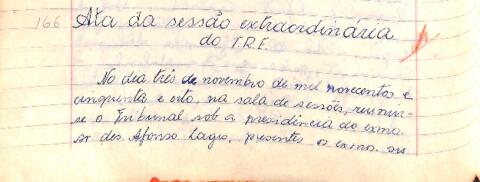 166 Ata da sessão extraordinária
do T.R.E.
No dia três de novembro de mil novecentos e
cinquenta e oito, na sala de sessões, reuniu-
se o Tribunal sob a presidência do exmo
sr des. Afonso Lages, presentes os exmos. srs